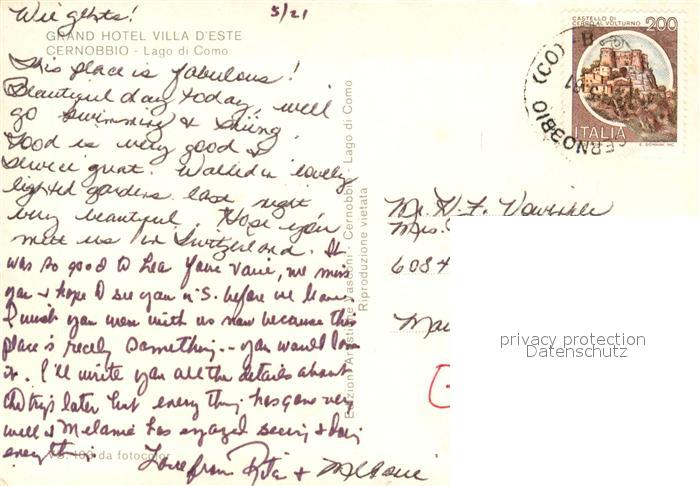 5/21
GRAND HOTEL VILLA D'ESTE
CERNOBBIO - Lago di Como
This place is fabulous!
Beautiful day today, will
go swimming & skiing.
Food is very good &
service great. Walked in lovely
lighted gardens last night
very beautiful. Hope you
meet us in Switzerland. It
was so good to hear your voice, we miss
you & hope to see you in S. before we leave.
I wish you were with us now because this
place is really something -- you would love
it. I'll write you all the details about
the trip later but everything has gone very
well & Melanie has enjoyed seeing & doing
everything.
Love from Rita & Melanie
VS. 103 da fotocolor
Cernobbio - Lago di Como
Riproduzione vietata
CASTELLO DI
CERRO AL VOLTURNO
200
ITALIA
CERNOBBIO (CO)
Mr. H. F.
Mrs.
6084
privacy protection
Datenschutz